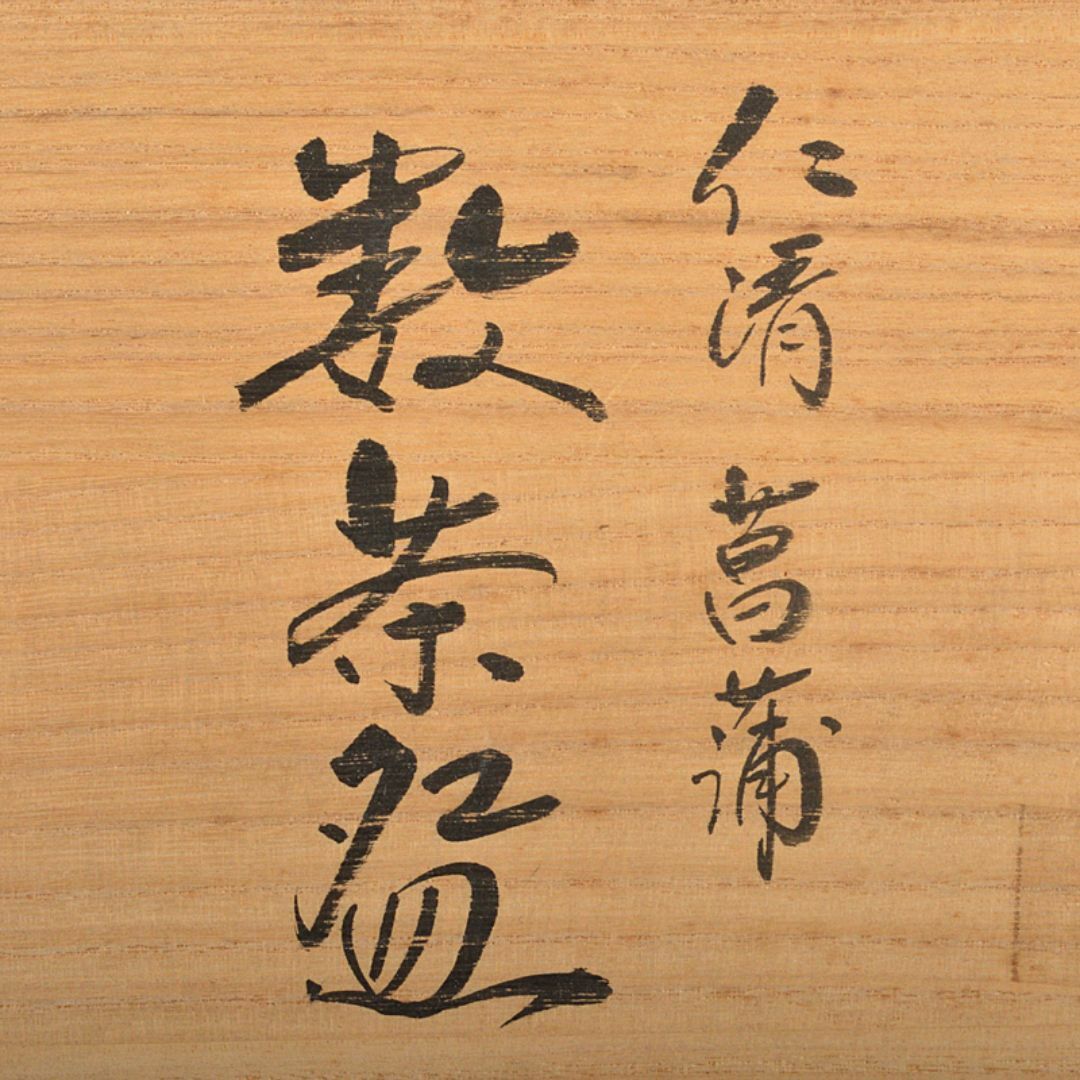 仁清 菖蒲
数茶盌